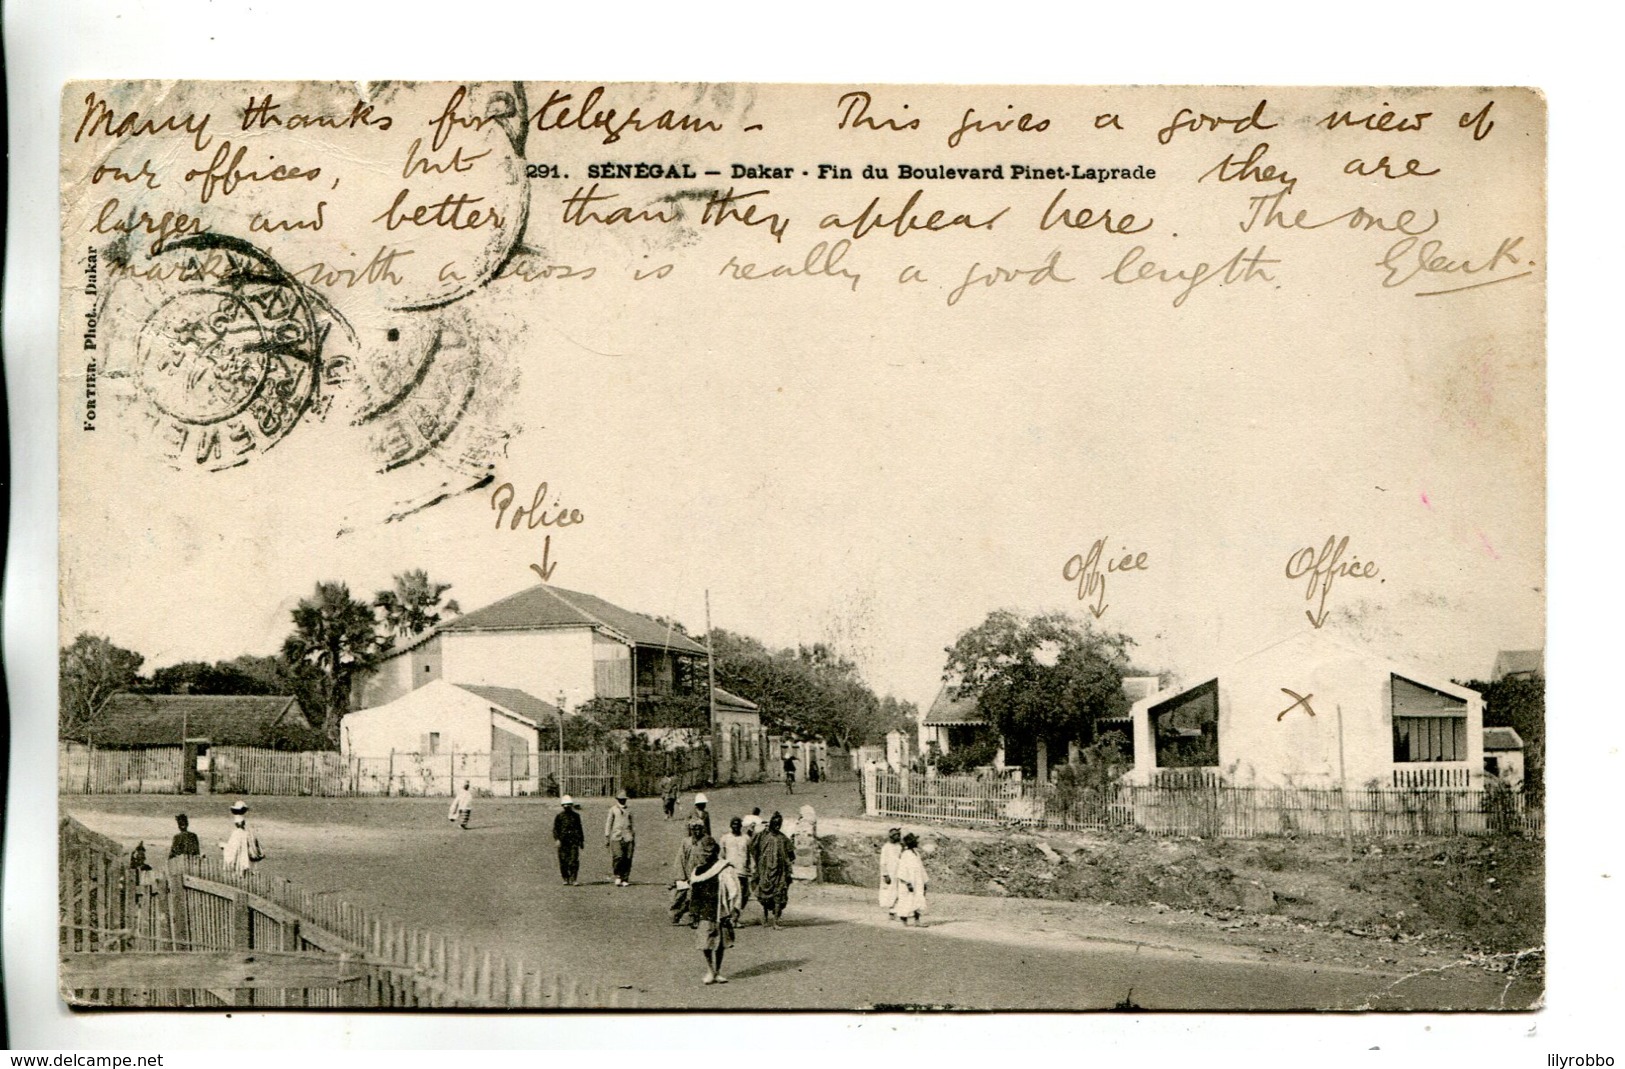 Many thanks for telegram - This gives a good view of
our offices, but they are
291. SÉNÉGAL — Dakar - Fin du Boulevard Pinet-Laprade
larger and better than they appear here. The one
marked with a cross is really a good length.
FORTIER, Phot., Dakar
Police
Office
Office.
X
delcampe.net
lilyrobbo